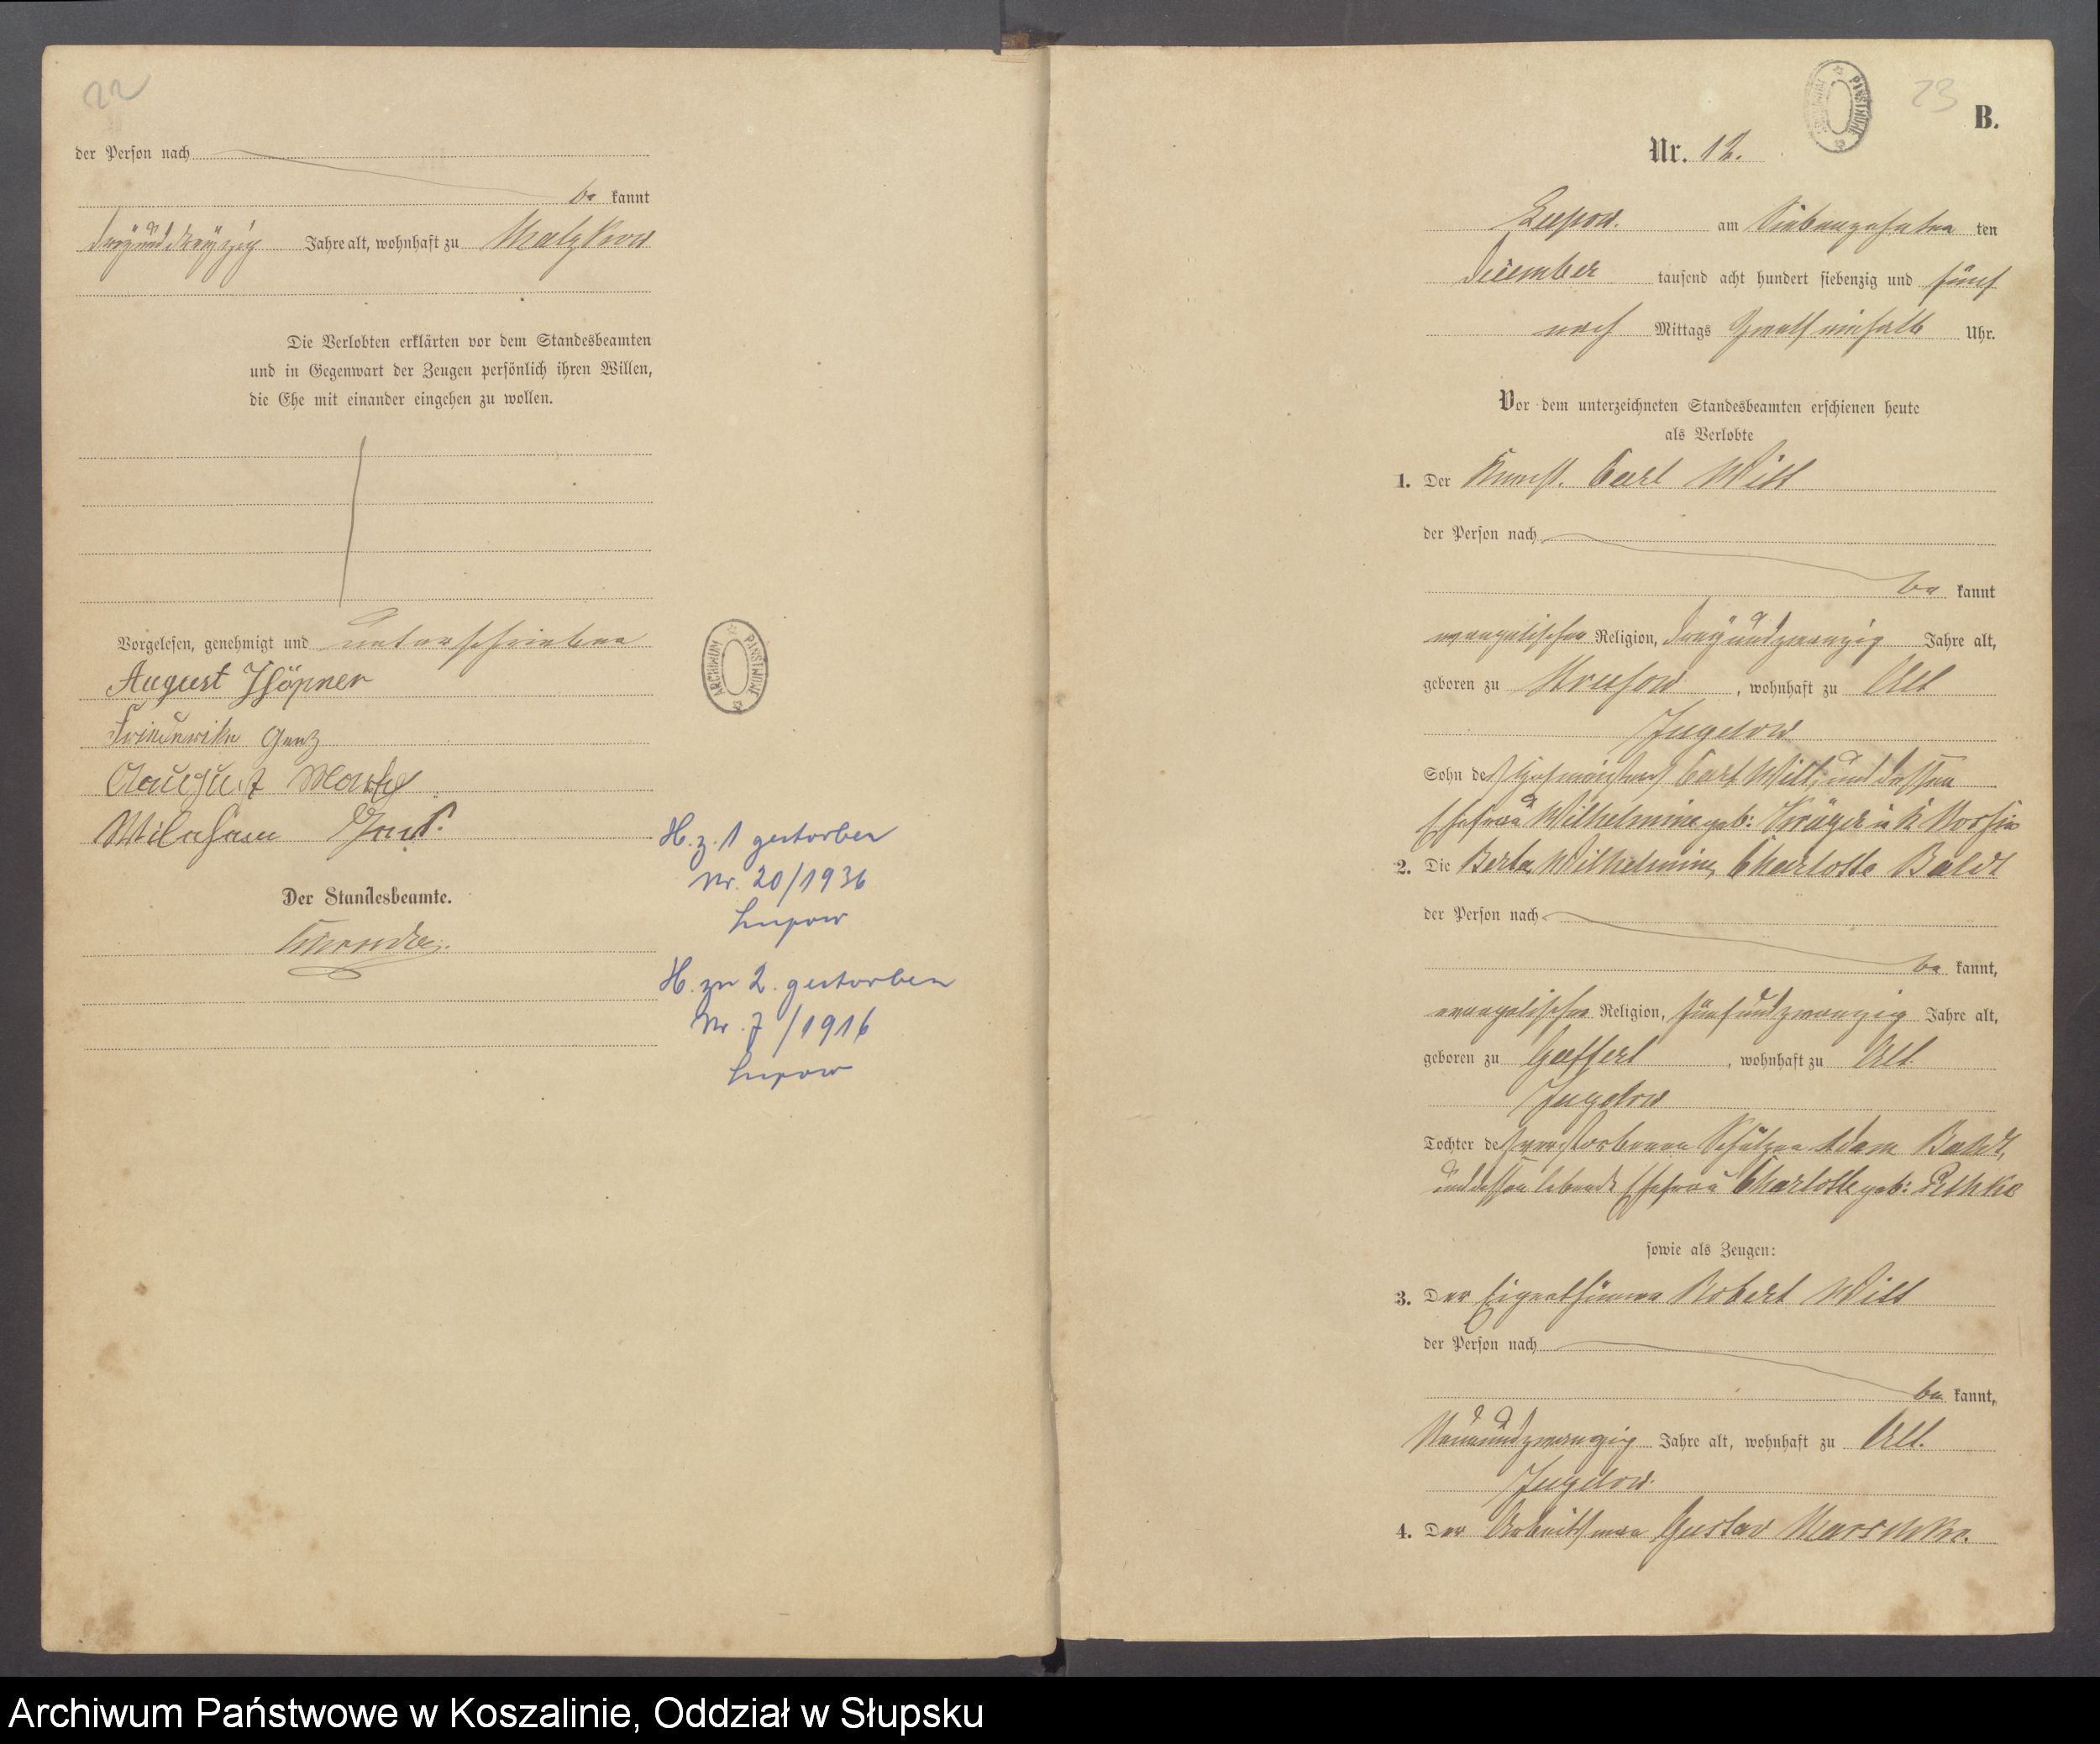 22
der Person nach
be kannt
dreyunddreyzig Jahre alt, wohnhaft zu Malzkow
Die Verlobten erklärten vor dem Standesbeamten
und in Gegenwart der Zeugen persönlich ihren Willen,
die Ehe mit einander eingehen zu wollen.
Vorgelesen, genehmigt und unterschrieben
August
Friederike Genz
August
Der Standesbeamte.
ARCHIWUM PAŃSTWOWE
H. z. 1 gestorben
Nr. 20/1936
Lupow
H. zu 2. gestorben
Nr. 7/1916
Lupow
23
B.
Nr. 12.
Lupow. am Siebenzehnten ten
December tausend acht hundert siebenzig und fünf
nach Mittags Uhr.
Vor dem unterzeichneten Standesbeamten erschienen heute
als Verlobte
1. Der Carl Witt
der Person nach
be kannt
evangelischer Religion, dreyundzwanzig Jahre alt,
geboren zu , wohnhaft zu Alt
Jugelow
Sohn des Carl Witt, und dessen
Ehefrau Wilhelmine geb: Krüger
2. Die Berta, Wilhelmine, Charlotte Baldt
der Person nach
be kannt,
evangelischer Religion, fünfundzwanzig Jahre alt,
geboren zu Gaffert, wohnhaft zu Alt.
Jugelow
Tochter des verstorbenen Adam Baldt,
und dessen lebende Ehefrau Charlotte geb: Pethke
sowie als Zeugen:
3. Der Eigenthümer Robert Witt
der Person nach
be kannt,
Neunundzwanzig Jahre alt, wohnhaft zu Alt.
Jugelow.
4. Der Arbeitsmann Gustav Marschke.
Archiwum Państwowe w Koszalinie, Oddział w Słupsku